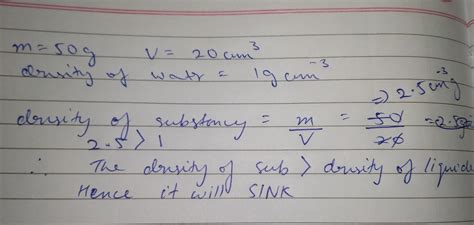 m = 50g V = 20 cm³
density of water = 1g cm⁻³
⇒ 2.5 cm⁻³g
density of substance = m/V = 50/20 = 2.5g
2.5 > 1
∴ The density of sub > density of liquid
Hence it will SINK